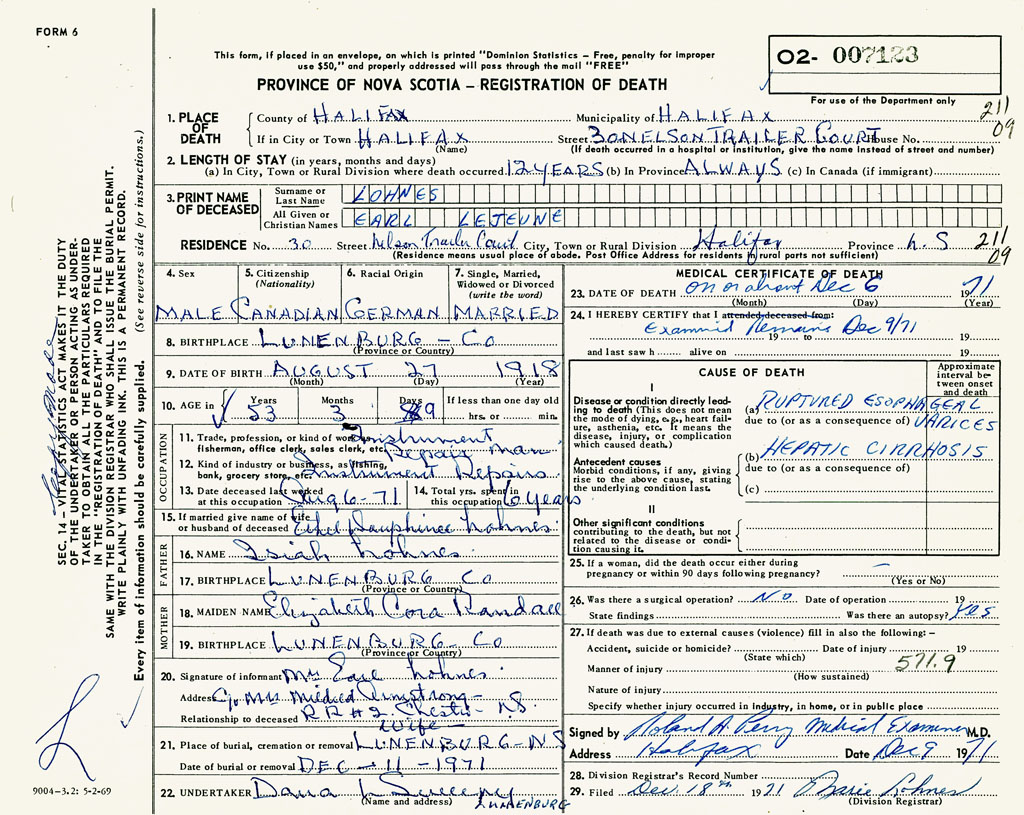 FORM 6
This form, if placed in an envelope, on which is printed "Dominion Statistics – Free, penalty for improper
use $50," and properly addressed will pass through the mail "FREE"
PROVINCE OF NOVA SCOTIA – REGISTRATION OF DEATH
O2- 007123
For use of the Department only
1. PLACE OF DEATH
County of HALIFAX Municipality of HALIFAX 211
If in City or Town HALIFAX Street 30 NELSON TRAILER COURT House No. 09
(Name) (If death occurred in a hospital or institution, give the name instead of street and number)
2. LENGTH OF STAY (in years, months and days)
(a) In City, Town or Rural Division where death occurred 12 YEARS (b) In Province ALWAYS (c) In Canada (if immigrant)
3. PRINT NAME OF DECEASED
Surname or Last Name LOHNES
All Given or Christian Names EARL LEJEUNE
RESIDENCE No. 30 Street Nelson Trailer Court City, Town or Rural Division Halifax Province N.S 211
(Residence means usual place of abode. Post Office Address for residents in rural parts not sufficient) 09
4. Sex
MALE
5. Citizenship (Nationality)
CANADIAN
6. Racial Origin
GERMAN
7. Single, Married, Widowed or Divorced (write the word)
MARRIED
8. BIRTHPLACE LUNENBURG – Co
(Province or Country)
9. DATE OF BIRTH AUGUST 27 1918
(Month) (Day) (Year)
10. AGE in Years Months Days If less than one day old
53 3 9 hrs. or min.
OCCUPATION
11. Trade, profession, or kind of work as Instrument
fisherman, office clerk, sales clerk, etc. Repair man
12. Kind of industry or business, as fishing,
bank, grocery store, etc. Instrument Repairs
13. Date deceased last worked at this occupation Aug 6-71
14. Total yrs. spent in this occupation 6 years
15. If married give name of wife
or husband of deceased Ethel Dauphinee Lohnes
FATHER
16. NAME Isiah Lohnes
17. BIRTHPLACE LUNENBURG Co
(Province or Country)
MOTHER
18. MAIDEN NAME Elizabeth Cora Randall
19. BIRTHPLACE LUNENBURG – Co
(Province or Country)
20. Signature of informant Mrs Earl Lohnes
Address C/o Mrs Mildred Armstrong –
RR#2 Chester N.S.
Relationship to deceased Wife –
21. Place of burial, cremation or removal LUNENBURG – NS
Date of burial or removal DEC – 11 – 1971
22. UNDERTAKER Dana L Sweeny
(Name and address) LUNENBURG
MEDICAL CERTIFICATE OF DEATH
23. DATE OF DEATH on or about Dec 6 1971
(Month) (Day) (Year)
24. I HEREBY CERTIFY that I attended deceased from:
Examined Remains Dec 9/71
19 to 19
and last saw h alive on 19
CAUSE OF DEATH
Approximate interval between onset and death
I
Disease or condition directly leading to death (This does not mean the mode of dying, e.g., heart failure, asthenia, etc. It means the disease, injury, or complication which caused death.)
(a) RUPTURED ESOPHAGEAL
due to (or as a consequence of) VARICES
Antecedent causes
Morbid conditions, if any, giving rise to the above cause, stating the underlying condition last.
(b) HEPATIC CIRRHOSIS
due to (or as a consequence of)
(c)
II
Other significant conditions
contributing to the death, but not related to the disease or condition causing it.
25. If a woman, did the death occur either during
pregnancy or within 90 days following pregnancy? –
(Yes or No)
26. Was there a surgical operation? No Date of operation 19
State findings Was there an autopsy? Yes
27. If death was due to external causes (violence) fill in also the following: –
Accident, suicide or homicide? Date of injury 19
(State which) 571.9
Manner of injury
(How sustained)
Nature of injury
Specify whether injury occurred in industry, in home, or in public place
Signed by Roland A. Perry Medical Examiner M.D.
Address Halifax Date Dec 9 1971
28. Division Registrar's Record Number
29. Filed Dec. 18th 1971 Marie Lohnes
(Division Registrar)
SEC. 14 – VITAL STATISTICS ACT MAKES IT THE DUTY
OF THE UNDERTAKER OR PERSON ACTING AS UNDER-
TAKER TO OBTAIN ALL THE PARTICULARS REQUIRED
IN THE "REGISTRATION OF DEATH" AND TO FILE THE
SAME WITH THE DIVISION REGISTRAR WHO SHALL ISSUE THE BURIAL PERMIT.
WRITE PLAINLY WITH UNFADING INK. THIS IS A PERMANENT RECORD.
Every item of information should be carefully supplied. (See reverse side for instructions.)
Copy made
9004-3.2: 5-2-69